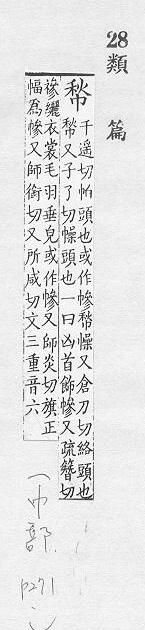 28類篇
㡑
千遥切帕頭也或作幓㡑幧又倉刀切絡頭也
㡑又子了切幧頭也一曰凶首飾幓又疏簪切
襂纚衣裳毛羽垂皃或作幓又師炎切旗正
幅爲幓又師銜切又所咸切文三重音六
(巾部.
p271